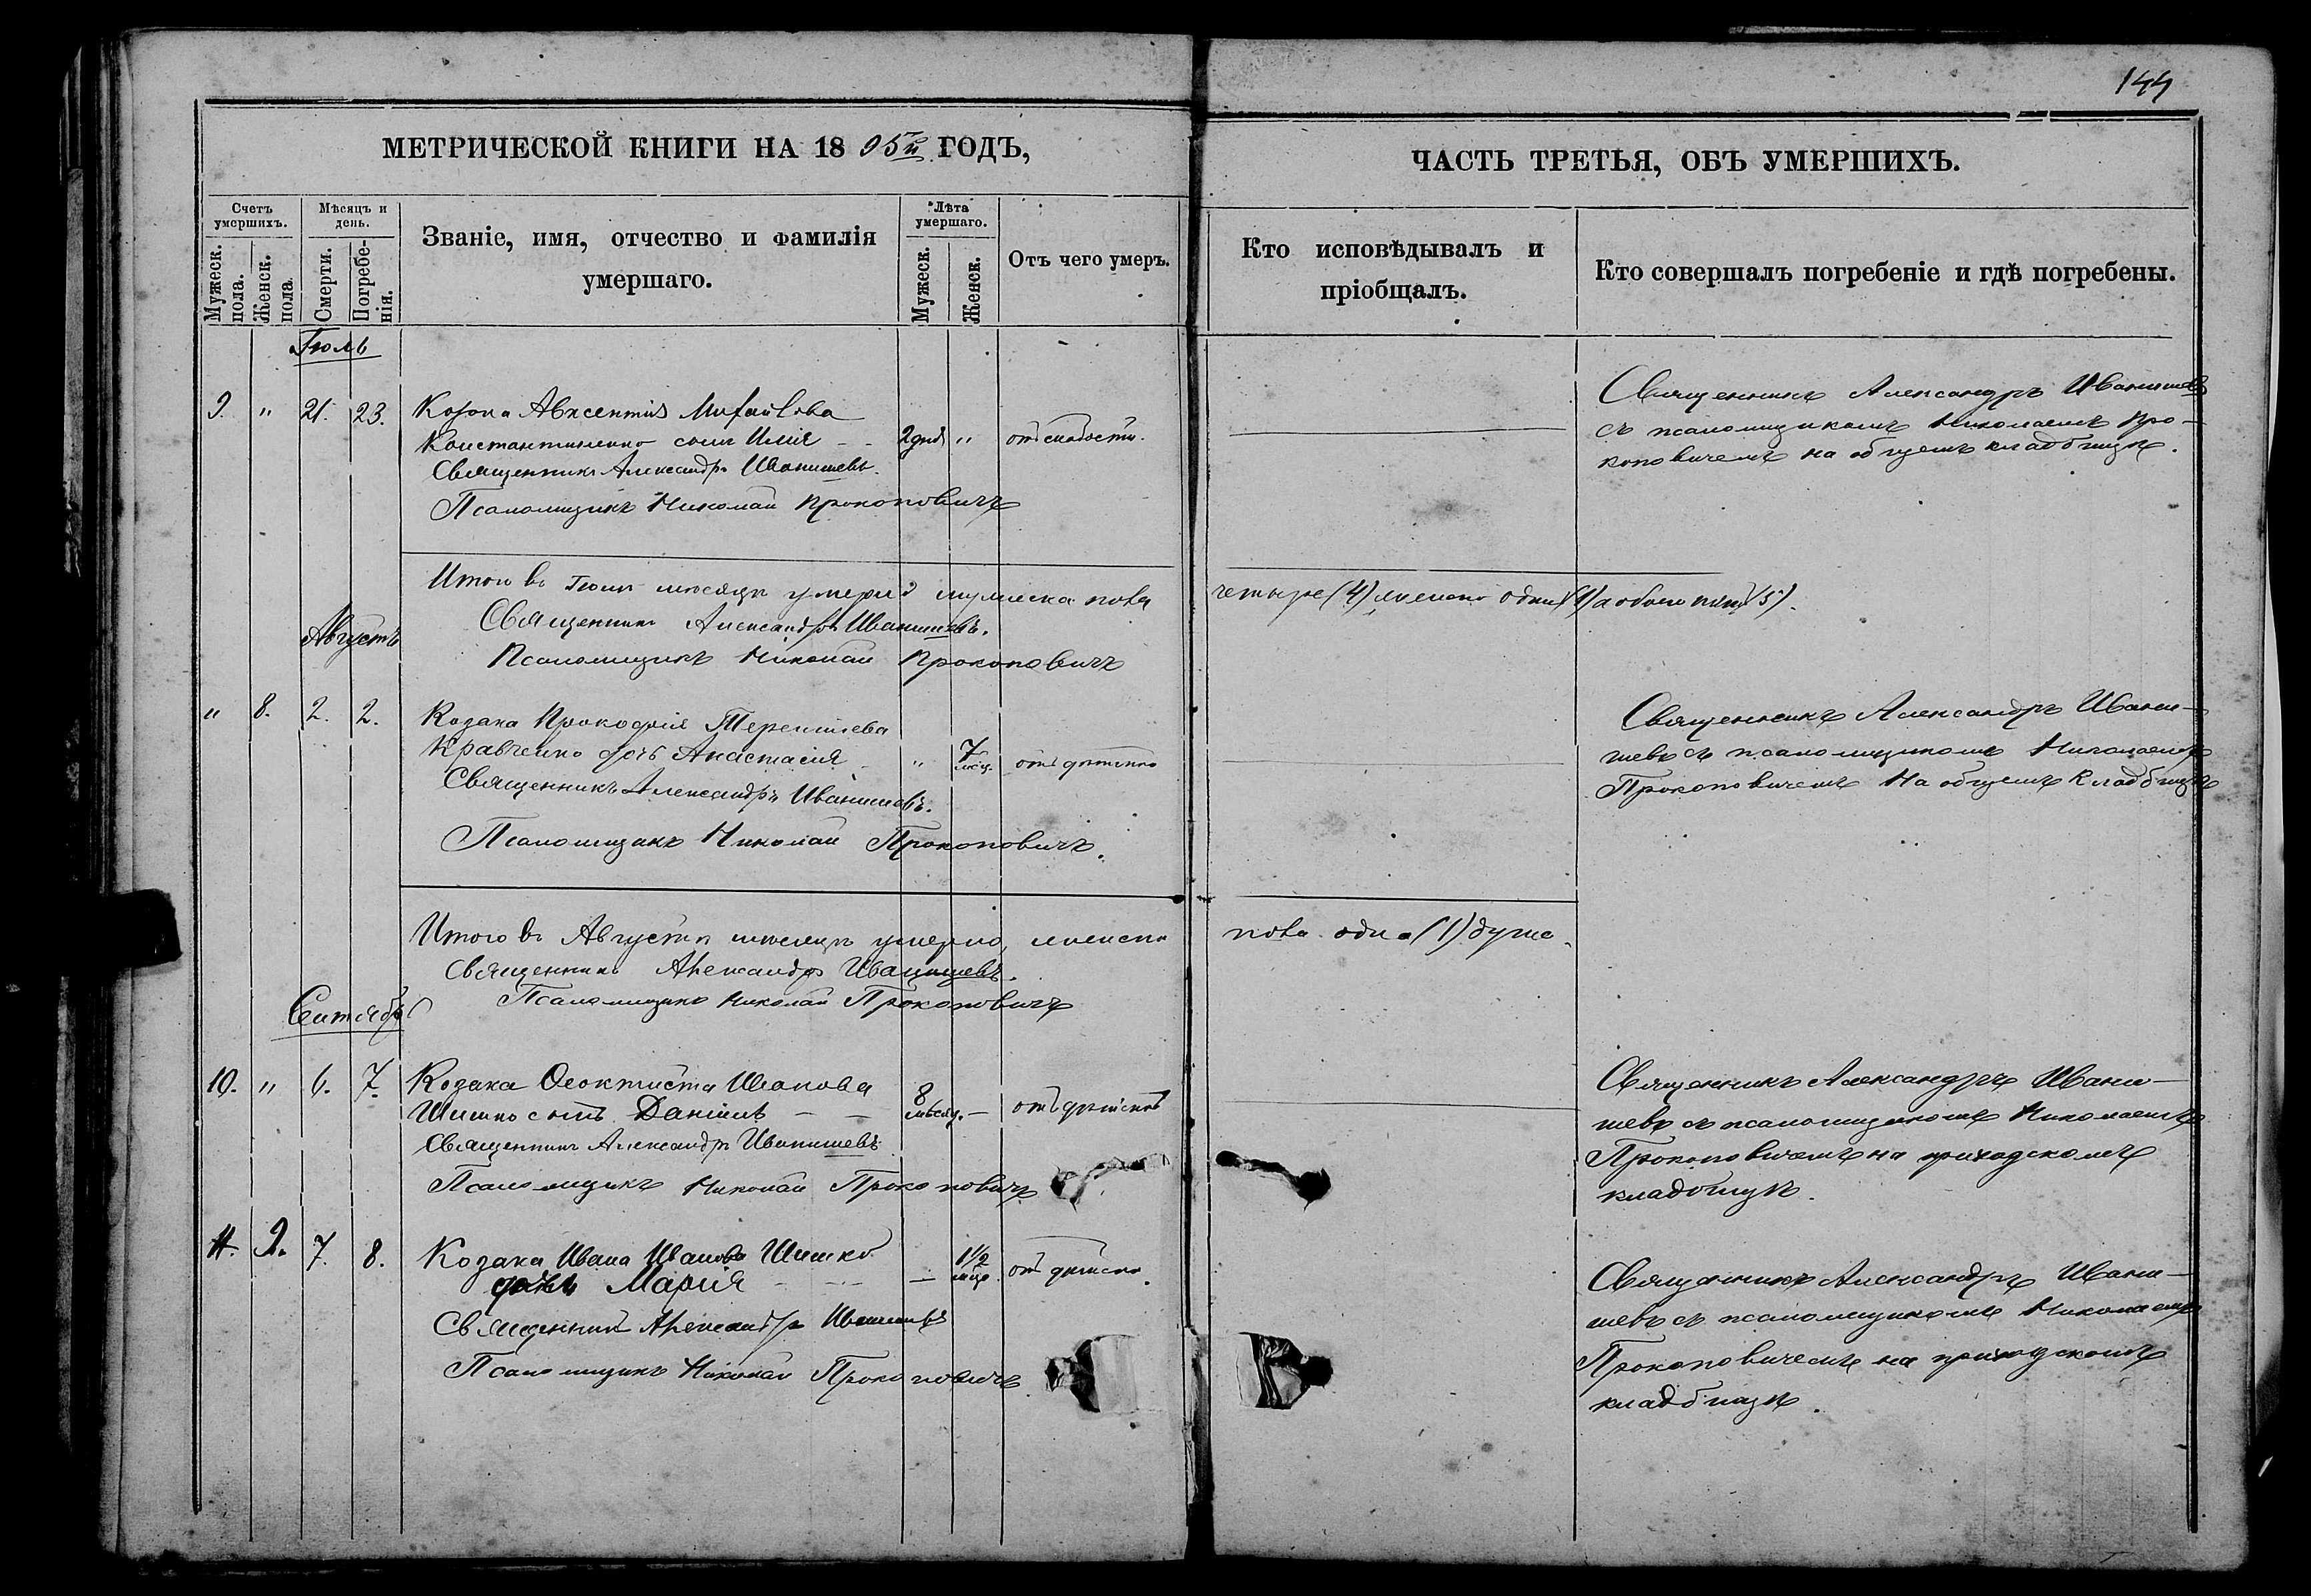 144
МЕТРИЧЕСКОЙ КНИГИ НА 18 95й ГОДЪ,
ЧАСТЬ ТРЕТЬЯ, ОБЪ УМЕРШИХЪ.
Счетъ умершихъ.
Мужеск. пола.
Женск. пола.
Мѣсяцъ и день.
Смерти.
Погребе-
нія.
Званіе, имя, отчество и фамилія
умершаго.
Лѣта
умершаго.
Мужеск.
Женск.
Отъ чего умеръ.
Кто исповѣдывалъ и
пріобщалъ.
Кто совершалъ погребеніе и гдѣ погребены.
Іюль
9. " 21. 23. Козака Авксентія Михайлова
Константиненко сынъ Илія - - 2 дня " отъ слабости.
Священникъ Александръ Иванишевъ.
Псаломщикъ Николай Прокоповичъ
Священникъ Александръ Иванишевъ
съ псаломщикомъ Николаемъ Про-
коповичемъ на общемъ кладбищѣ.
Итого въ Іюлѣ мѣсяцѣ умерло мужеска пола четыре (4) женска одна (1) а обоего пять (5).
Священникъ Александръ Иванишевъ.
Августъ
Псаломщикъ Николай Прокоповичъ
" 8. 2. 2. Козака Прокофія Терентіева
Кравченко дочь Анастасія " 7 мсц. отъ дѣтска
Священникъ Александръ Иванишевъ.
Псаломщикъ Николай Прокоповичъ.
Священникъ Александръ Ивани-
шевъ съ псаломщикомъ Николаемъ
Прокоповичемъ на общемъ кладбищѣ
Итого въ Августѣ мѣсяцѣ умерло, женска пола одна (1) душа.
Священникъ Александръ Иванишевъ.
Псаломщикъ Николай Прокоповичъ
Сентябрь
10. " 6. 7. Козака Ѳеоктиста Иванова
Шишко сынъ Даніилъ - - 8 мѣсяц. - отъ дѣтской
Священникъ Александръ Иванишевъ
Псаломщикъ Николай Прокоповичъ
Священникъ Александръ Ивани-
шевъ съ псаломщикомъ Николаемъ
Прокоповичемъ на приходскомъ
кладбищѣ.
9. 7. 8. Козака Ивана Иванова Шишко
дочь Марія - - - 1½ мца. отъ дѣтска.
Священникъ Александръ Иванишевъ
Псаломщикъ Николай Прокоповичъ
Священникъ Александръ Ивани-
шевъ съ псаломщикомъ Николаемъ
Прокоповичемъ на приходскомъ
кладбищѣ.